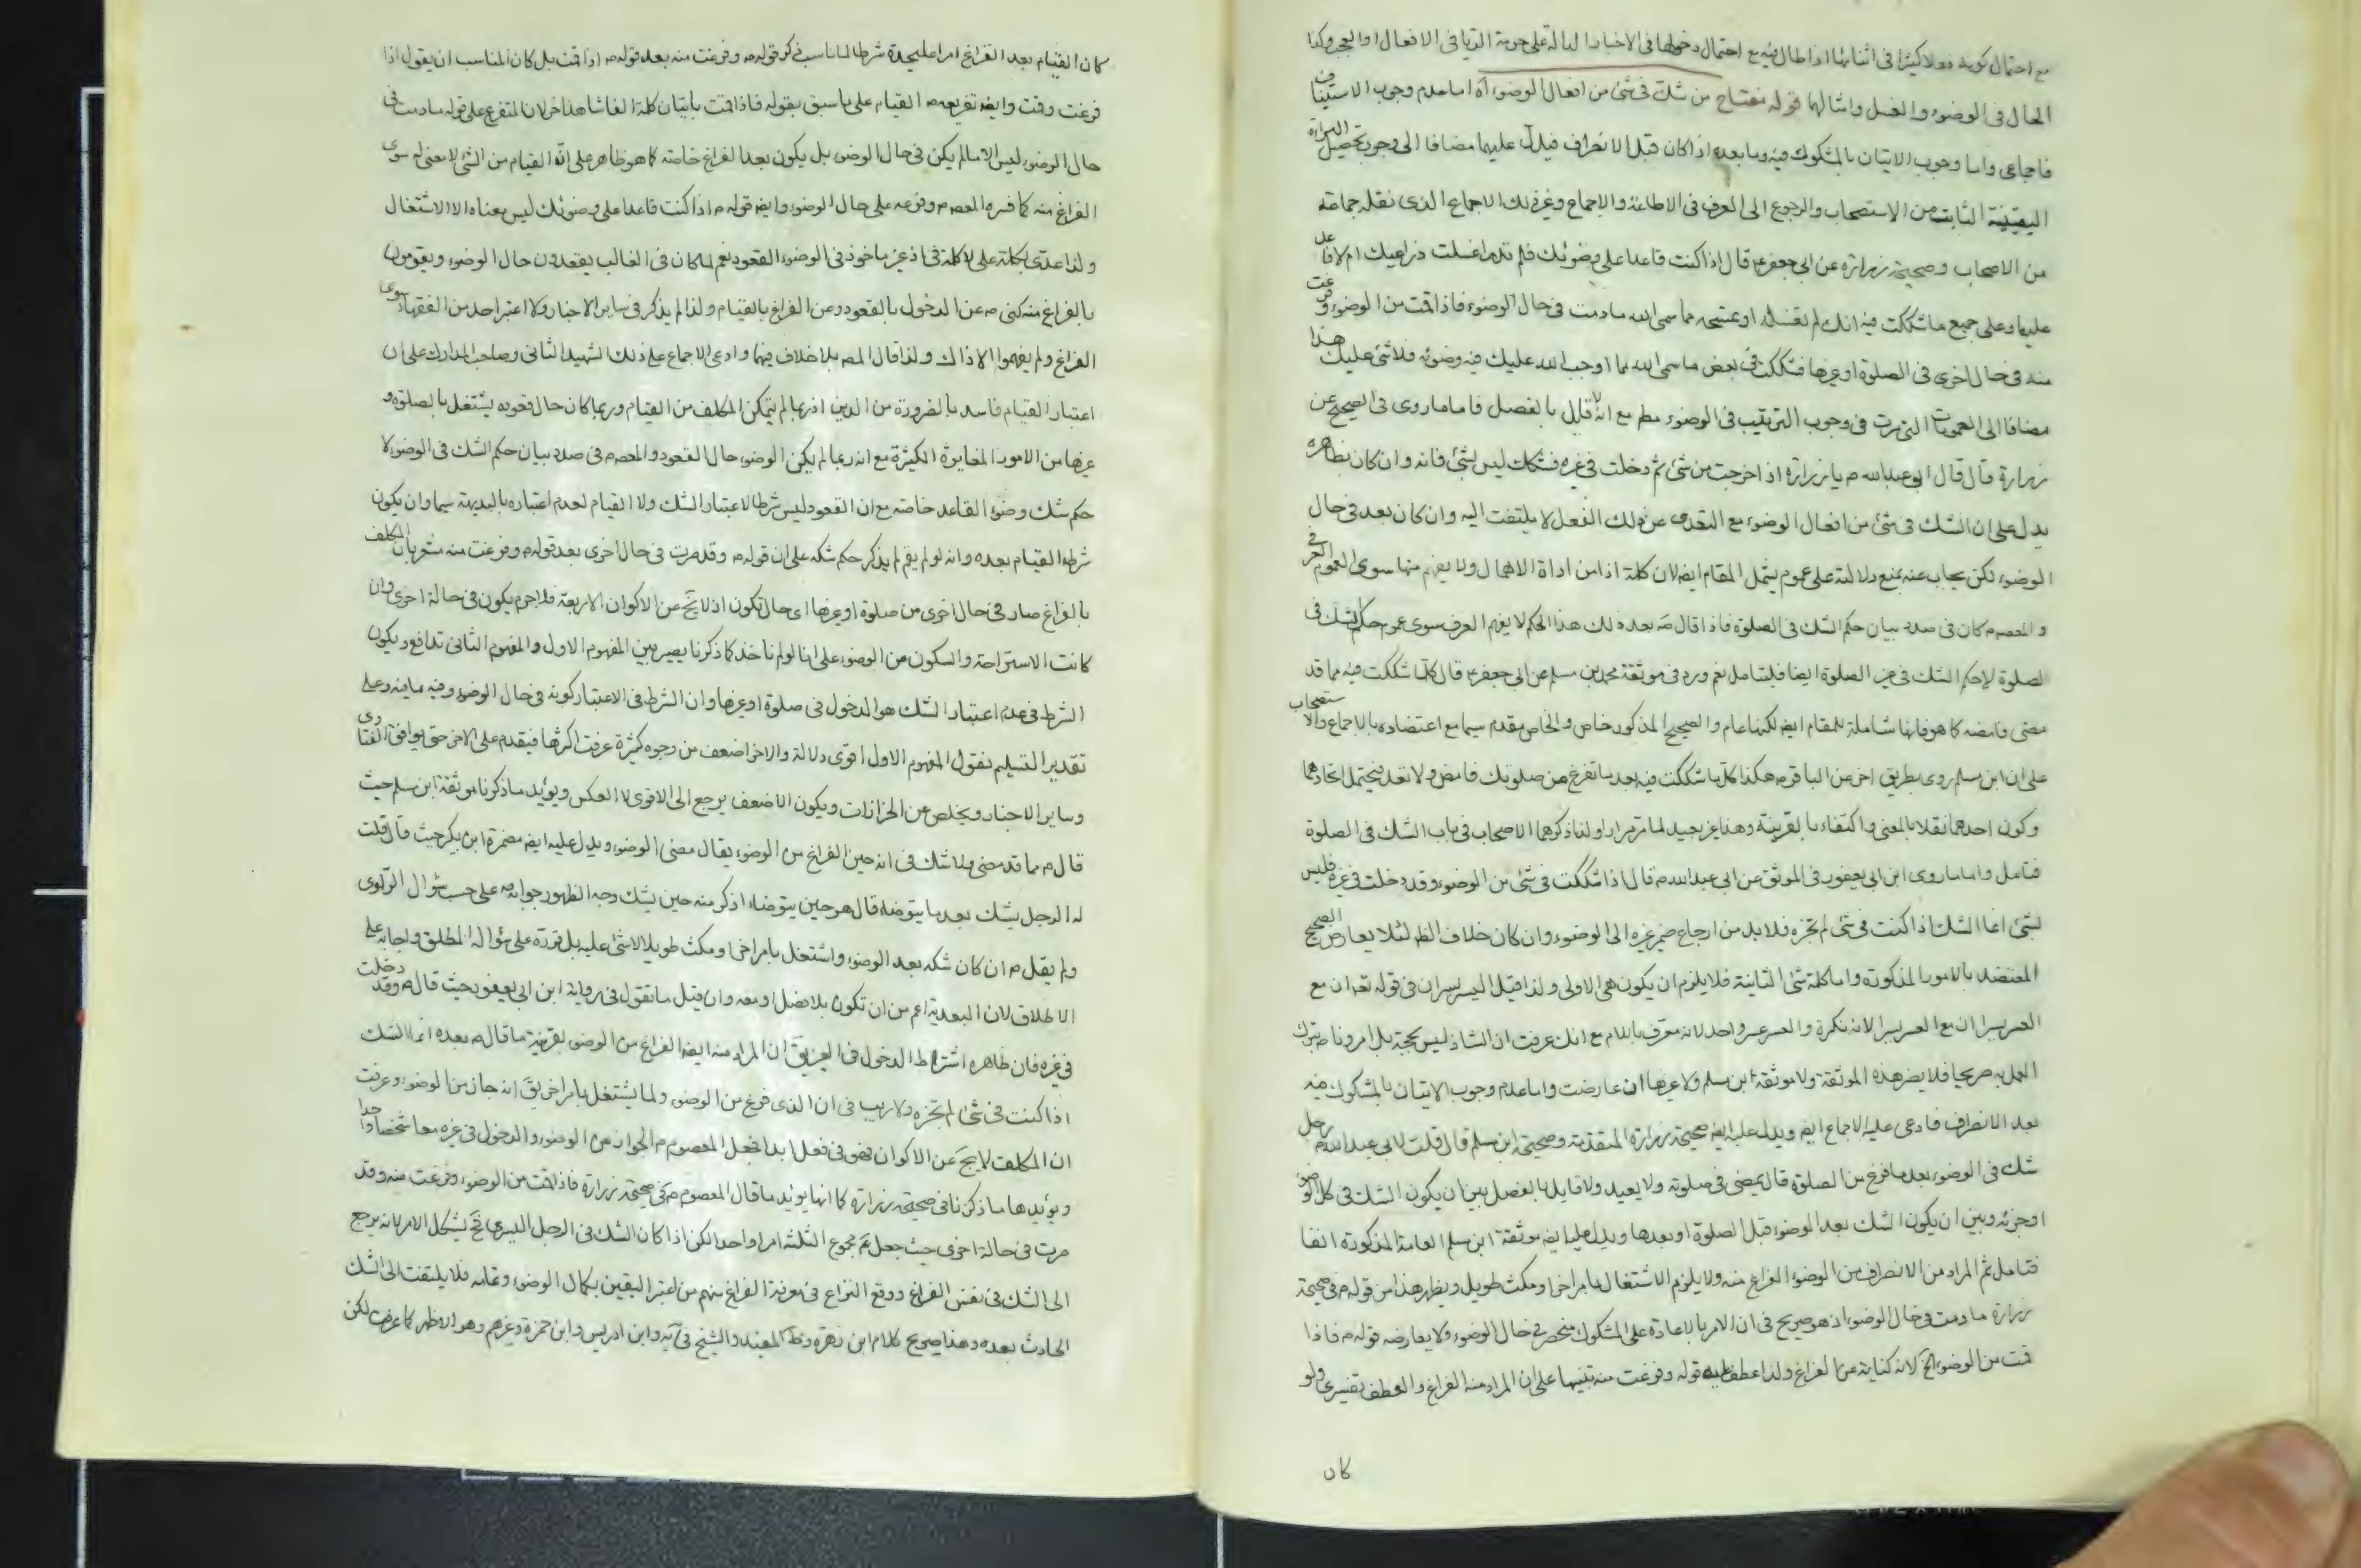 مع احتمال كونه فعلا كثيرا فى اثنائها اذا طال فيه مع احتمال دخولها فى الاخبار الدالة على حرمة الريا فى الافعال او العجب وكذا
الحال فى الوضوء والغسل وامثالهما قوله مفتاح من شك فى شئ من افعال الوضوء اه اما عدم وجوب الاستيناف
فاجماعى واما وجوب الاتيان بالمشكوك فيه وما بعده اذا كان قبل الانصراف فيدل عليهما مضافا الى وجوب تحصيل البراءة
اليقينية الثابت من الاستصحاب والرجوع الى العرف فى الاطاعة والاجماع وغير ذلك الاجماع الذى نقله جماعة
من الاصحاب وصحيحة زرارة عن ابى جعفر ع قال اذا كنت قاعدا على وضوئك فلم تدر اغسلت ذراعيك ام لا فاعد
عليهما وعلى جميع ما شككت فيه انك لم تغسله او تمسحه مما سمى الله ما دمت فى حال الوضوء فاذا قمت من الوضوء وفرغت
منه فى حال اخرى فى الصلوة او غيرها فشككت فى بعض ما سمى الله مما اوجب الله عليك فيه وضوئه فلا شئ عليك هذا
مضافا الى العمومات التى مرت فى وجوب الترتيب فى الوضوء مطم مع انه لا قائل بالفصل فاما ما روى فى الصحيح عن
زرارة قال قال ابو عبد الله م يا زرارة اذا خرجت من شئ ثم دخلت فى غيره فشكك ليس بشئ فانه وان كان بظاهره
يدل على ان الشك فى شئ من افعال الوضوء مع التعدى عن ذلك الفعل لا يلتفت اليه وان كان بعد فى حال
الوضوء لكن يجاب عنه بمنع دلالته على عموم يشمل المقام ايضا لان كلمة اذا من اداة الاهمال ولا يفهم منها سوى العموم العرفى
والمعصوم كان فى صدد بيان حكم الشك فى الصلوة فاذا قال بعد ذلك هذا الحكم لا يفهم العرف سوى عموم حكم الشك فى
لصلوة لا حكم الشك فى غير الصلوة ايضا فليتامل نعم ورد فى موثقة محمد بن مسلم عن ابى جعفر ع قال كلما شككت فيه مما قد
مضى فامضه كما هو فانها شاملة للمقام ايضا لكنها عام والصحيح المذكور خاص والخاص مقدم سيما مع اعتضاده بالاجماع والاستصحاب
على ان ابن مسلم روى بطريق اخر عن الباقر م هكذا كل ما شككت فيه بعد ما تفرغ من صلوتك فامض ولا تعد فيحتمل اتحادهما
وكون احدهما نقلا بالمعنى واكتفاء بالقرينة وهذا غير بعيد لما مر مرارا ولذا ذكرهما الاصحاب فى باب الشك فى الصلوة
فتامل واما ما روى ابن ابى يعفور فى الموثق عن ابى عبد الله م قال اذا شككت فى شئ من الوضوء وقد دخلت فى غيره فليس
بشئ انما الشك اذا كنت فى شئ لم تجزه فلا بد من ارجاع ضمير غيره الى الوضوء وان كان خلاف الظ لئلا يعارض الصحيح
المعتضد بالامور المذكورة واما كلمة شئ الثانية فلا يلزم ان يكون هى الاولى ولذا قيل اليسر يسران فى قوله تعه ان مع
العسر يسرا ان مع العسر يسرا لانه نكرة والعسر عسر واحد لانه معرف باللام مع انك عرفت ان الشاذ ليس بحجة بل امرونا م بترك
العمل به صريحا فلا يضر هذه الموثقة ولا موثقة ابن مسلم ولا غيرها ان عارضت واما عدم وجوب الاتيان بالمشكوك فيه
بعد الانصراف فادعى عليه الاجماع ايضا ويدل عليه ايضا صحيحة زرارة المتقدمة وصحيحة ابن مسلم قال قلت لابى عبد الله م رجل
شك فى الوضوء بعد ما فرغ من الصلوة قال يمضى فى صلوته ولا يعيد ولا قايل بالفصل بين ان يكون الشك فى كل الوضوء
او جزئه وبين ان يكون الشك بعد الوضوء قبل الصلوة او بعدها ويدل عليه ايضا موثقة ابن مسلم العامة المذكورة انفا
فتامل ثم المراد من الانصراف من الوضوء الفراغ منه ولا يلزم الاشتغال بامر اخر او مكث طويل ويظهر هذا من قوله م فى صحيحة
زرارة ما دمت فى حال الوضوء اذ هو صريح فى ان الامر بالاعادة على المشكوك منحصر فى حال الوضوء ولا يعارضه قوله م فاذا
قمت من الوضوء الخ لانه كناية عن الفراغ ولذا عطف عليه قوله وفرغت منه تنبيها على ان المراد منه الفراغ والعطف تفسيرى ولو
كان
كان القيام بعد الفراغ امرا عليحدة شرطا لما ناسب ذكر قوله م وفرغت منه بعد قوله م اذا قمت بل كان المناسب ان يقول اذا
فرغت وقمت وايضا تفريعه م القيام على ما سبق بقوله فاذا قمت باتيان كلمة الفا شاهد اخر لان المتفرع على قوله ما دمت فى
حال الوضوء ليس الا ما لم يكن فى حال الوضوء بل يكون بعد الفراغ خاصة كما هو ظاهر على ان القيام من الشئ لا معنى له سوى
الفراغ منه كما فسره المعصوم وفرعه على حال الوضوء وايضا قوله م اذا كنت قاعدا على وضوئك ليس معناه الا الاشتغال
ولذا عدى بكلمة على لا كلمة فى اذ غير ماخوذ فى الوضوء القعود نعم لما كان فى الغالب يقعدون حال الوضوء ويقومون
بالفراغ منه كنى م عن الدخول بالقعود وعن الفراغ بالقيام ولذا لم يذكر فى ساير الاخبار ولا اعتبر احد من الفقهاء سوى
الفراغ ولم يفهموا الا ذاك ولذا قال المص بلا خلاف فيهما وادعى الاجماع على ذلك الشهيد الثانى وصاحب المدارك على ان
اعتبار القيام فاسد بالضرورة من الدين اذ ربما لم يتمكن المكلف من القيام وربما كان حال قعوده يشتغل بالصلوة و
غيرها من الامور المغايرة الكثيرة مع انه ربما لم يكن الوضوء حال القعود والمعصوم فى صدد بيان حكم الشك فى الوضوء لا
حكم شك وضوء القاعد خاصة مع ان القعود ليس شرطا لاعتبار الشك ولا القيام لعدم اعتباره بالبديهة سيما وان يكون
شرط القيام بعده وانه لو لم يقم لم يذكر حكم شكه على ان قوله م وقد مرت فى حال اخرى بعد قوله م وفرغت منه مشعر بان المكلف
بالفراغ صار فى حال اخرى من صلوة او غيرها اى حال تكون اذ لا يخ عن الاكوان الاربعة فلا جرم يكون فى حالة اخرى وان
كانت الاستراحة والسكون عن الوضوء على انا لو لم ناخذ كما ذكرنا يصير بين المفهوم الاول والمفهوم الثانى تدافع ويكون
الشرط فى عدم اعتبار الشك هو الدخول فى صلوة او غيرها وان الشرط فى الاعتبار كونه فى حال الوضوء وفيه ما فيه وعلى
تقدير التسليم نقول المفهوم الاول اقوى دلالة والاخر اضعف من وجوه كثيرة عرفت اكثرها فيقدم على الاخر حتى يوافق الفتاوى
وساير الاخبار ويخلص عن الحزازات ويكون الاضعف يرجع الى الاقوى لا العكس ويؤيد ما ذكرنا موثقة ابن مسلم حيث
قال م مما قد مضى ولا شك فى انه حين الفراغ من الوضوء يقال مضى الوضوء ويدل عليه ايضا مضمرة ابن بكير حيث قال قلت
له الرجل يشك بعد ما يتوضا قال هو حين يتوضا اذكر منه حين يشك وجه الظهور جوابه م على حسب سؤال الراوى
ولم يقل م ان كان شكه بعد الوضوء واشتغل بامر اخر او مكث طويلا لا شئ عليه بل قرره على سؤاله المطلق واجابه على
الاطلاق لان البعدية اعم من ان تكون بلا فصل او معه وان قيل ما تقول فى رواية ابن ابى يعفور حيث قال م وقد دخلت
فى غيره فان ظاهره اشتراط الدخول فى الغير يق ان المراد منه ايضا الفراغ من الوضوء بقرينة ما قال م بعده انما الشك
اذا كنت فى شئ لم تجزه ولا ريب فى ان الذى فرغ من الوضوء ولما يشتغل بامر اخر يق انه جاز من الوضوء وعرفت
ان المكلف لا يخ عن الاكوان فهو فى فعل ابدا فجعل المعصوم م الجواز من الوضوء والدخول فى غيره معا شخصا واحدا
ويؤيدها ما ذكرنا فى صحيحة زرارة كما انها يؤيد ما قال المعصوم م فى صحيحة زرارة فاذا قمت من الوضوء وفرغت منه وقد
مرت فى حالة اخرى حيث جعل م مجموع الثلثة امرا واحدا لكن اذا كان الشك فى الرجل اليسرى فح يشكل الامر بانه يرجع
الى الشك فى نفس الفراغ ووقع النزاع فى معرفة الفراغ منهم من اعتبر اليقين بكمال الوضوء وتمامه فلا يلتفت الى الشك
الحادث بعده وهذا صريح كلام ابن زهرة وظ المفيد والشيخ فى يه وابن ادريس وابن حمزة وغيرهم وهو الاظهر كما عرفت لكن